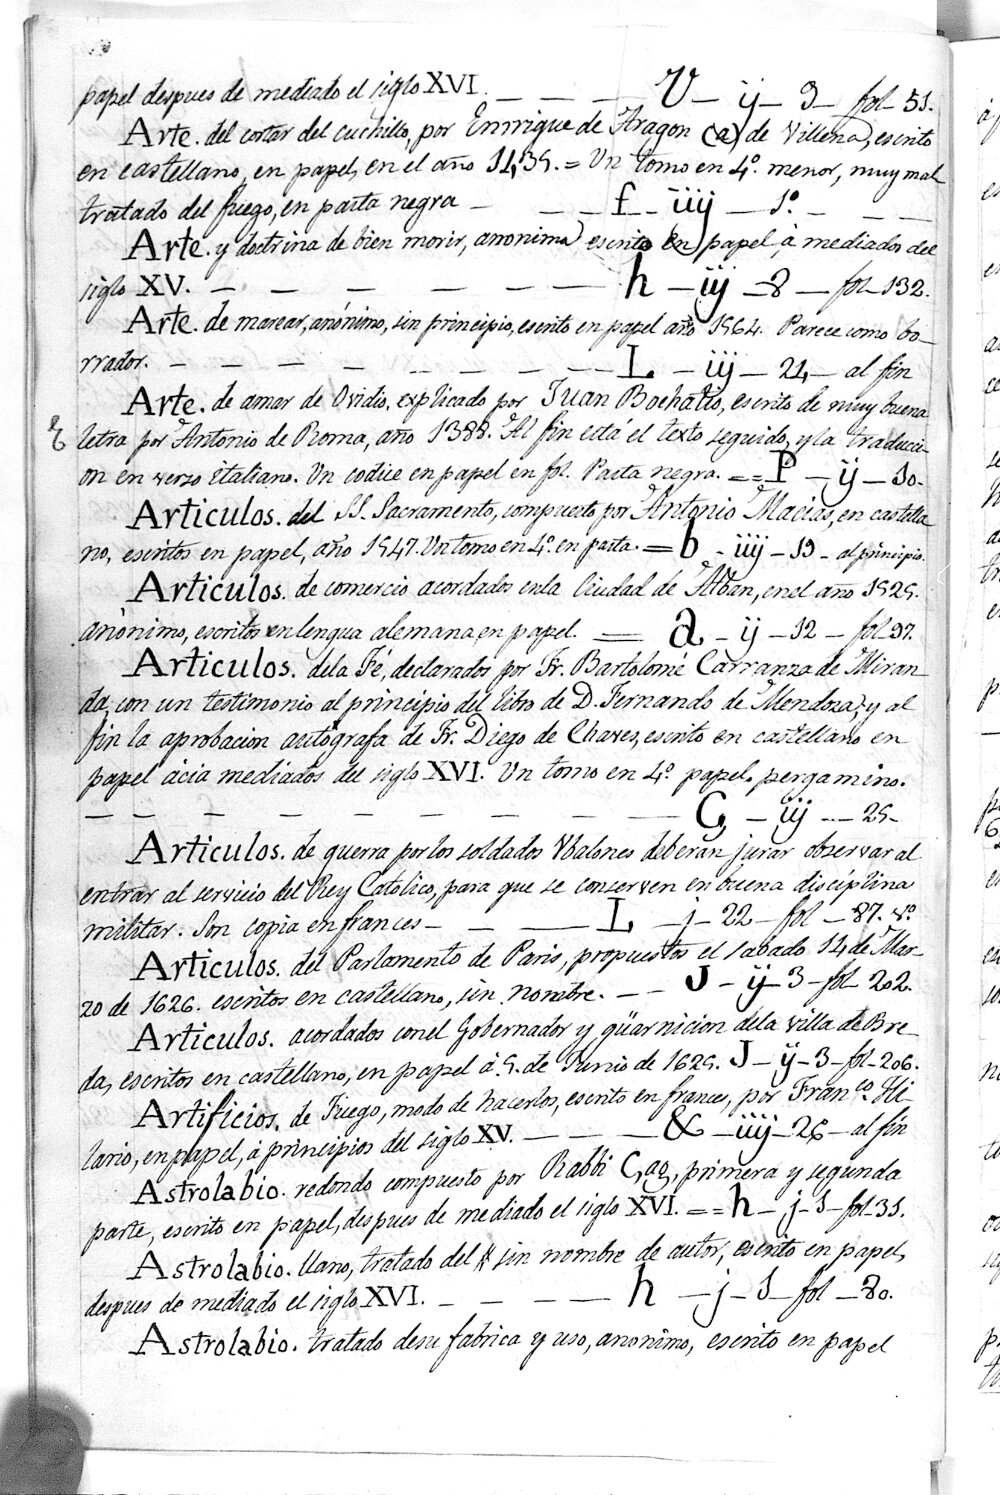 papel despues de mediado el siglo XVI. — — — V — ij — 9 — fol — 51.
Arte. del cortar del cuchillo, por Enrrique de Aragon (a) de Villena, escrito
en castellano, en papel, en el año 1435. = Un tomo en 4º. menor, muy mal
tratado del fuego, en pasta negra — — — f — iiij — 1º. — — —
Arte. y doctrina de bien morir, anonima escrito en papel, à mediados del
siglo XV. — — — — — — h — iij — 8 — fol — 132.
Arte. de marear, anónimo, sin principio, escrito en papel año 1564. Parece como bo-
rrador. — — — — — — — L — iij — 24 — al fin
Arte. de amar de Ovidio, explicado por Juan Bochatio, escrito de muy buena
letra por Antonio de Roma, año 1388. Al fin està el texto seguido, y la traducci-
on en verso italiano. Un codice en papel en fol. Pasta negra. == P — ij — 10.
Articulos. del SS. Sacramento, compuesto por Antonio Macias, en castella-
no, escritos en papel, año 1547. Un tomo en 4º. en pasta. = b — iiij — 19 — al principio.
Articulos. de comercio acordados en la Ciudad de Alban, en el año 1525.
anònimo, escritos en lengua alemana, en papel. = a — ij — 12 — fol 97.
Articulos. de la Fé, declarados por Fr. Bartolomè Carranza de Miran-
da, con un testimonio al principio del libro de D. Fernando de Mendoza, y al
fin la aprobacion autógrafa de Fr. Diego de Chaves, escrito en castellano en
papel ácia mediados del siglo XVI. Un tomo en 4º. papel, pergamino.
— — — — — — — — — Ç — iij — 25 —
Articulos. de guerra que los soldados Vvalones deberan jurar observar al
entrar al servicio del Rey Catolico, para que se conserven en buena disciplina
militar. Son copia en frances — — — L — j — 22 — fol — 87. vº.
Articulos. del Parlamento de Paris, propuestos el sabado 14 de Mar-
zo de 1626. escritos en castellano, sin nombre. — — J — ij — 3 — fol 202.
Articulos. acordados con el Gobernador y güarnicion de la villa de Bre-
da, escritos en castellano, en papel à 5. de Junio de 1625. J — ij — 3 — fol — 206.
Artificios. de Fuego, modo de hacerlos, escrito en frances, por Franco. Hi-
lario, en papel, à principios del siglo XV. — — — & — iiij — 26 — al fin
Astrolabio. redondo compuesto por Rabbi Çag, primera y segunda
parte, escrito en papel, despues de mediado el siglo XVI. == h — j — 1 — fol 31.
Astrolabio. llano, tratado del # sin nombre de autor, escrito en papel,
despues de mediado el siglo XVI. — — — — h — j — 1 — fol — 80.
Astrolabio. tratado de su fabrica y uso, anonimo, escrito en papel